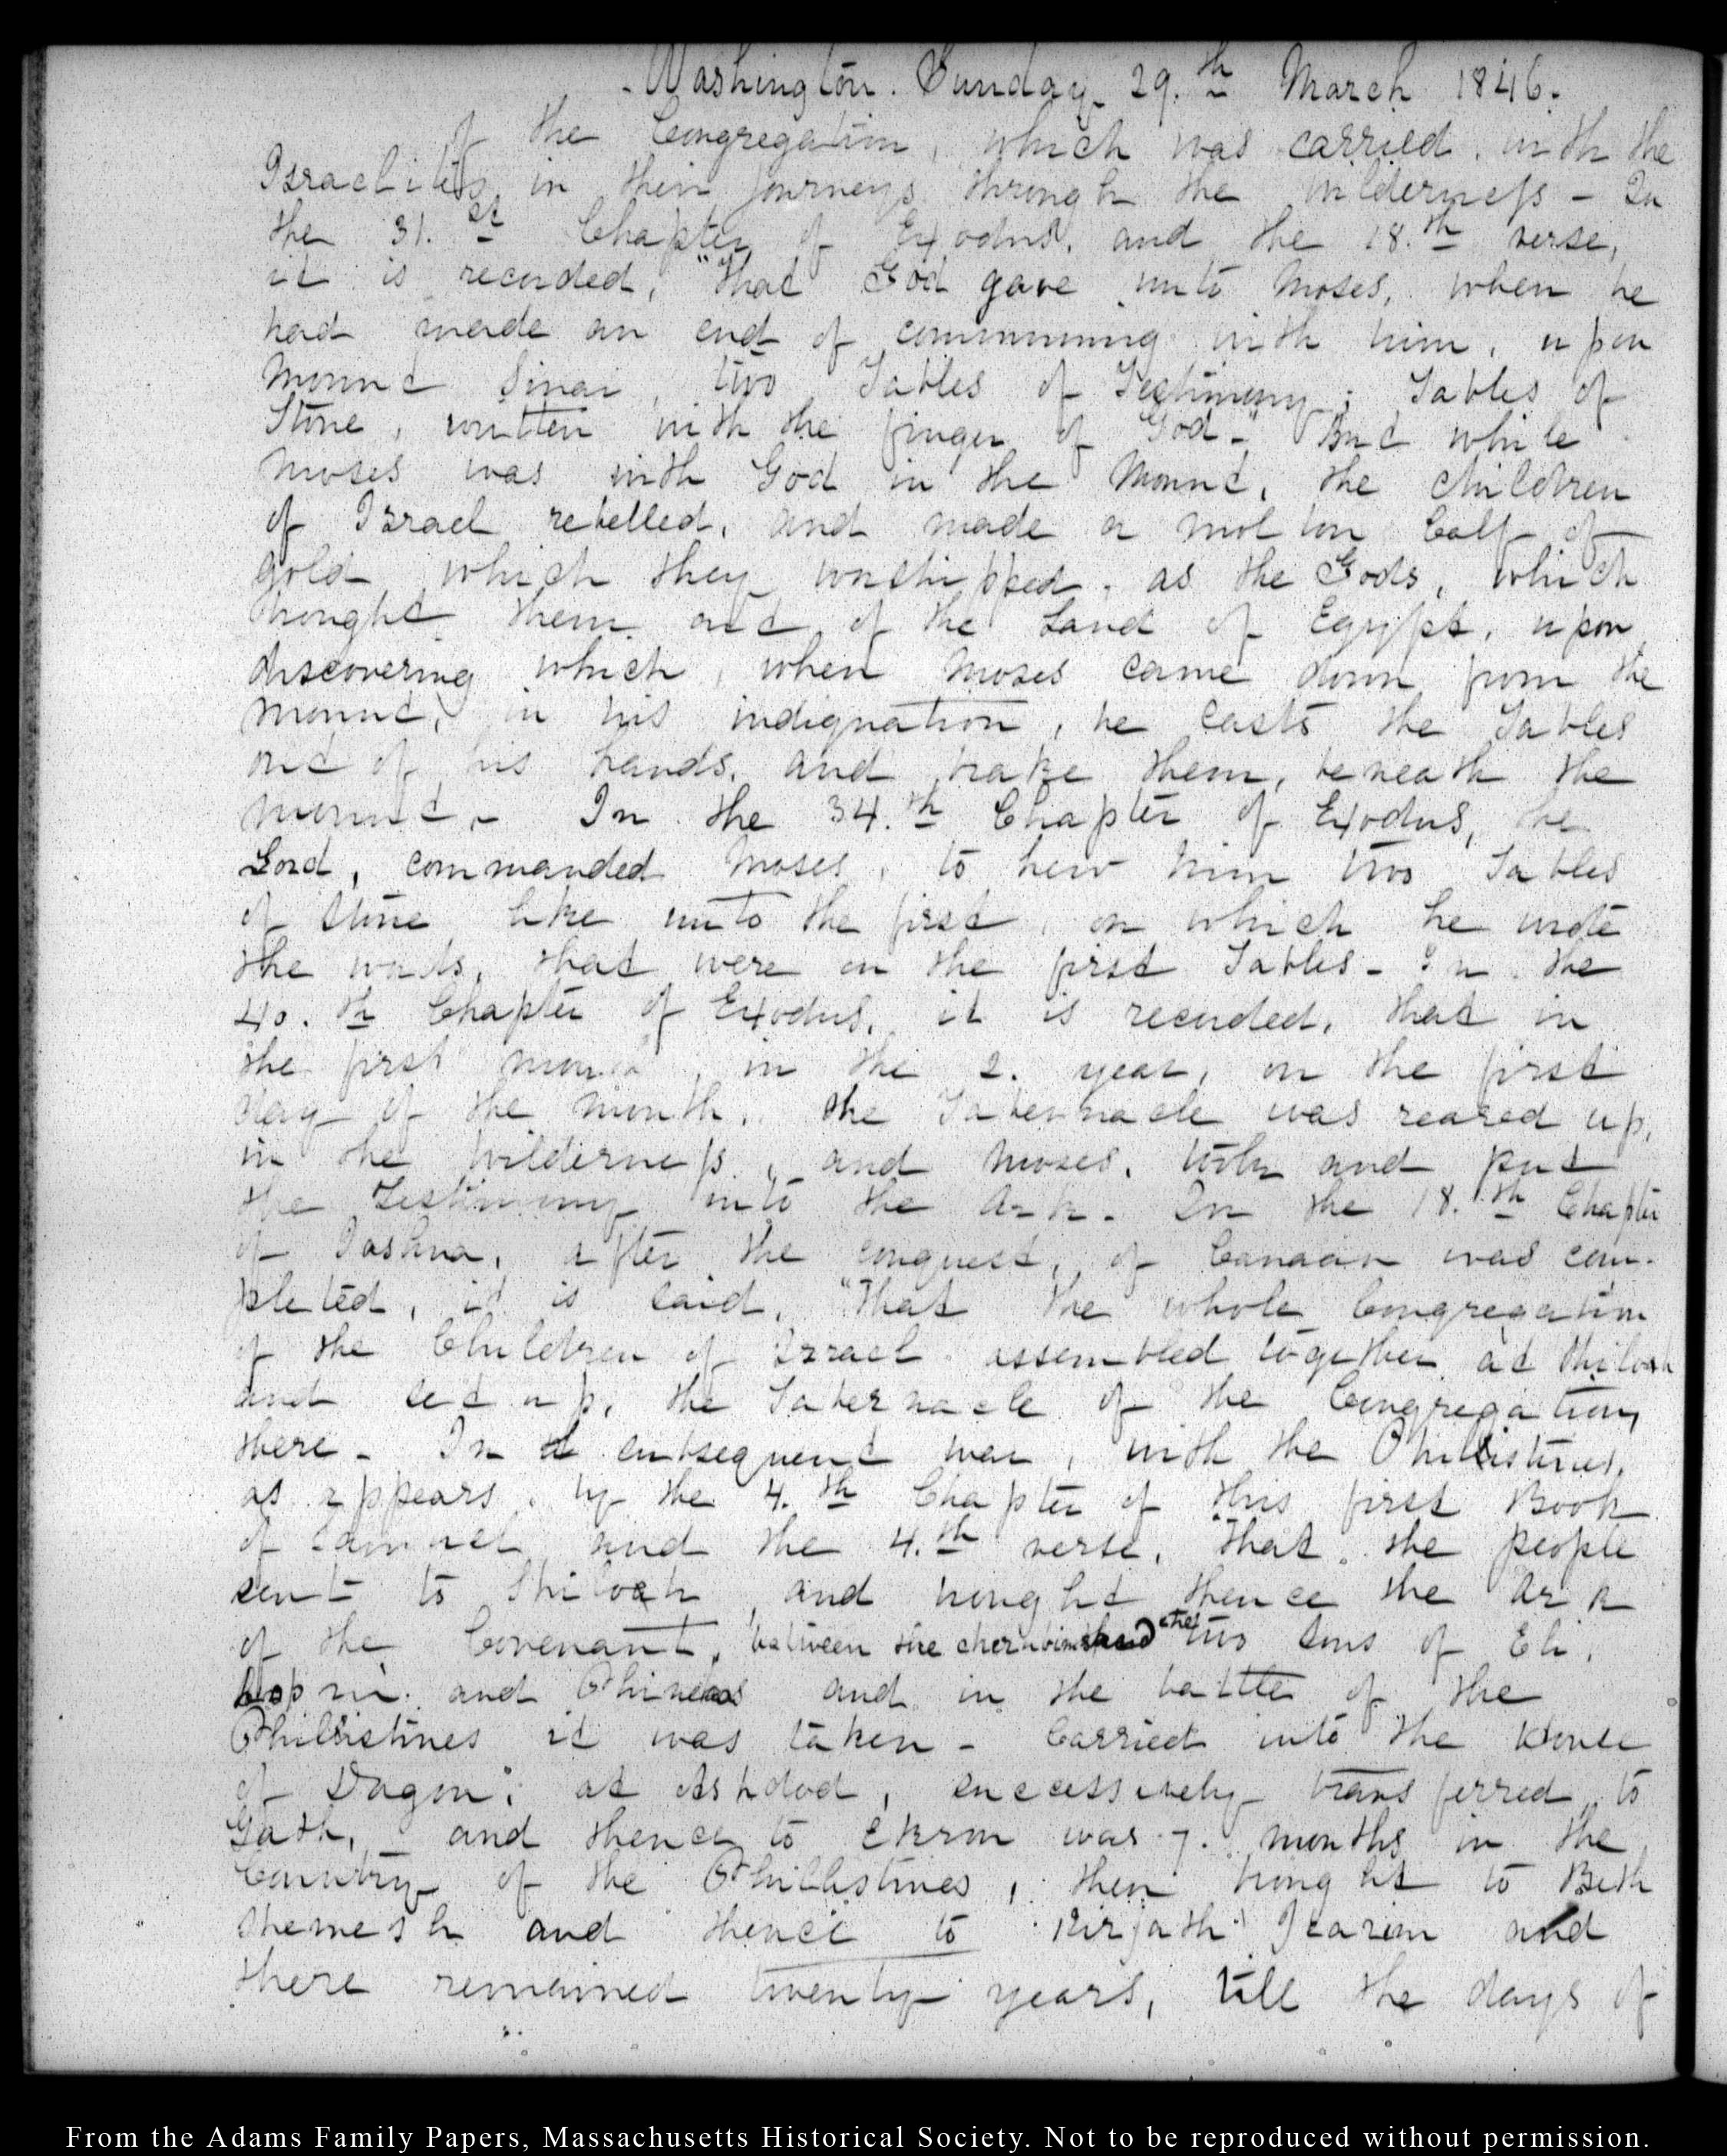 Washington. Sunday 29.th March 1846.
of the Congregation, which was carried, with the
Israelites, in their journeys through the Wilderness - In
the 31.st Chapter of Exodus, and the 18.th verse,
it is recorded, "that God gave unto Moses, when he
had made an end of communing with him, upon
Mount Sinai, two Tables of Testimony; Tables of
Stone, written with the finger of God." But while
Moses was with God in the Mount, the children
of Israel rebelled, and made a molton Calf of
gold which they worshipped, as the Gods, which
brought them out of the Land of Egypt, upon
discovering which, when Moses came down from the
mount, in his indignation, he casts the Tables
out of his hands, and brake them, beneath the
mount. - In the 34.th Chapter of Exodus, the
Lord, commanded Moses, to hew him two Tables
of Stone like unto the first, on which he wrote
the words, that were on the first Tables - In the
40.th Chapter of Exodus, it is recorded, that in
the first month, in the 2. year, on the first
day of the month, the Tabernacle was reared up,
in the wilderness, and Moses, took and put
the Testimony into the Ark. In the 18.th Chapter
of Joshua, after the conquest, of Canaan was com-
pleted, it is said, "That the whole Congregation
of the Children of Israel assembled together at Shiloah
and set up, the Tabernacle of the Congregation,
there - In a subsequent war, with the Philistines,
as appears, by the 4.th Chapter of this first Book
of Samuel and the 4.th verse, "that the people
sent to Shiloah, and brought thence the Ark
of the Covenant, between the cherubims and the two Sons of Eli,
Hopni and Phineas and in the battle of the
Philistines it was taken - Carried into the House
of Dagon, at Ashdod, successively transferred to
Gath, and thence to Ekron was 7. months in the
Country of the Philistines, then brought to Beth
shemesh and thence to Kirjath Jearim and
there remained twenty years, till the days of
From the Adams Family Papers, Massachusetts Historical Society. Not to be reproduced without permission.